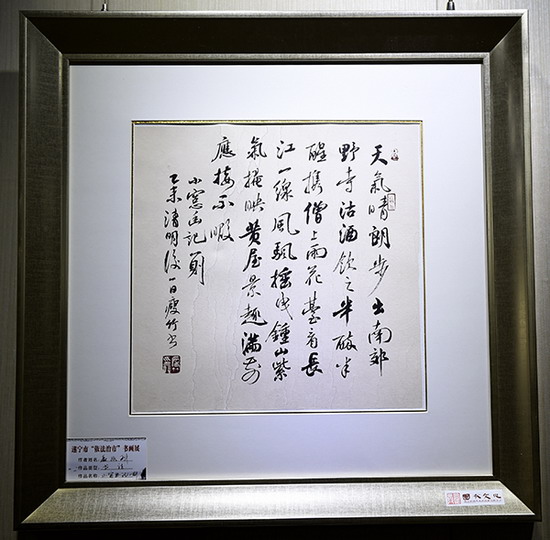 天氣晴朗步出南郊
野寺沽酒飲之半酣半
醒携僧上雨花臺看長
江一線風颿摇曳鍾山紫
氣掩映黄屋景趣滿前
應接不暇
小窓幽記一則
乙未清明後一日瘦竹书
遂宁市“依法治市”书画展
作者姓名:
作品类型:书法
作品名称:小窗幽记一则